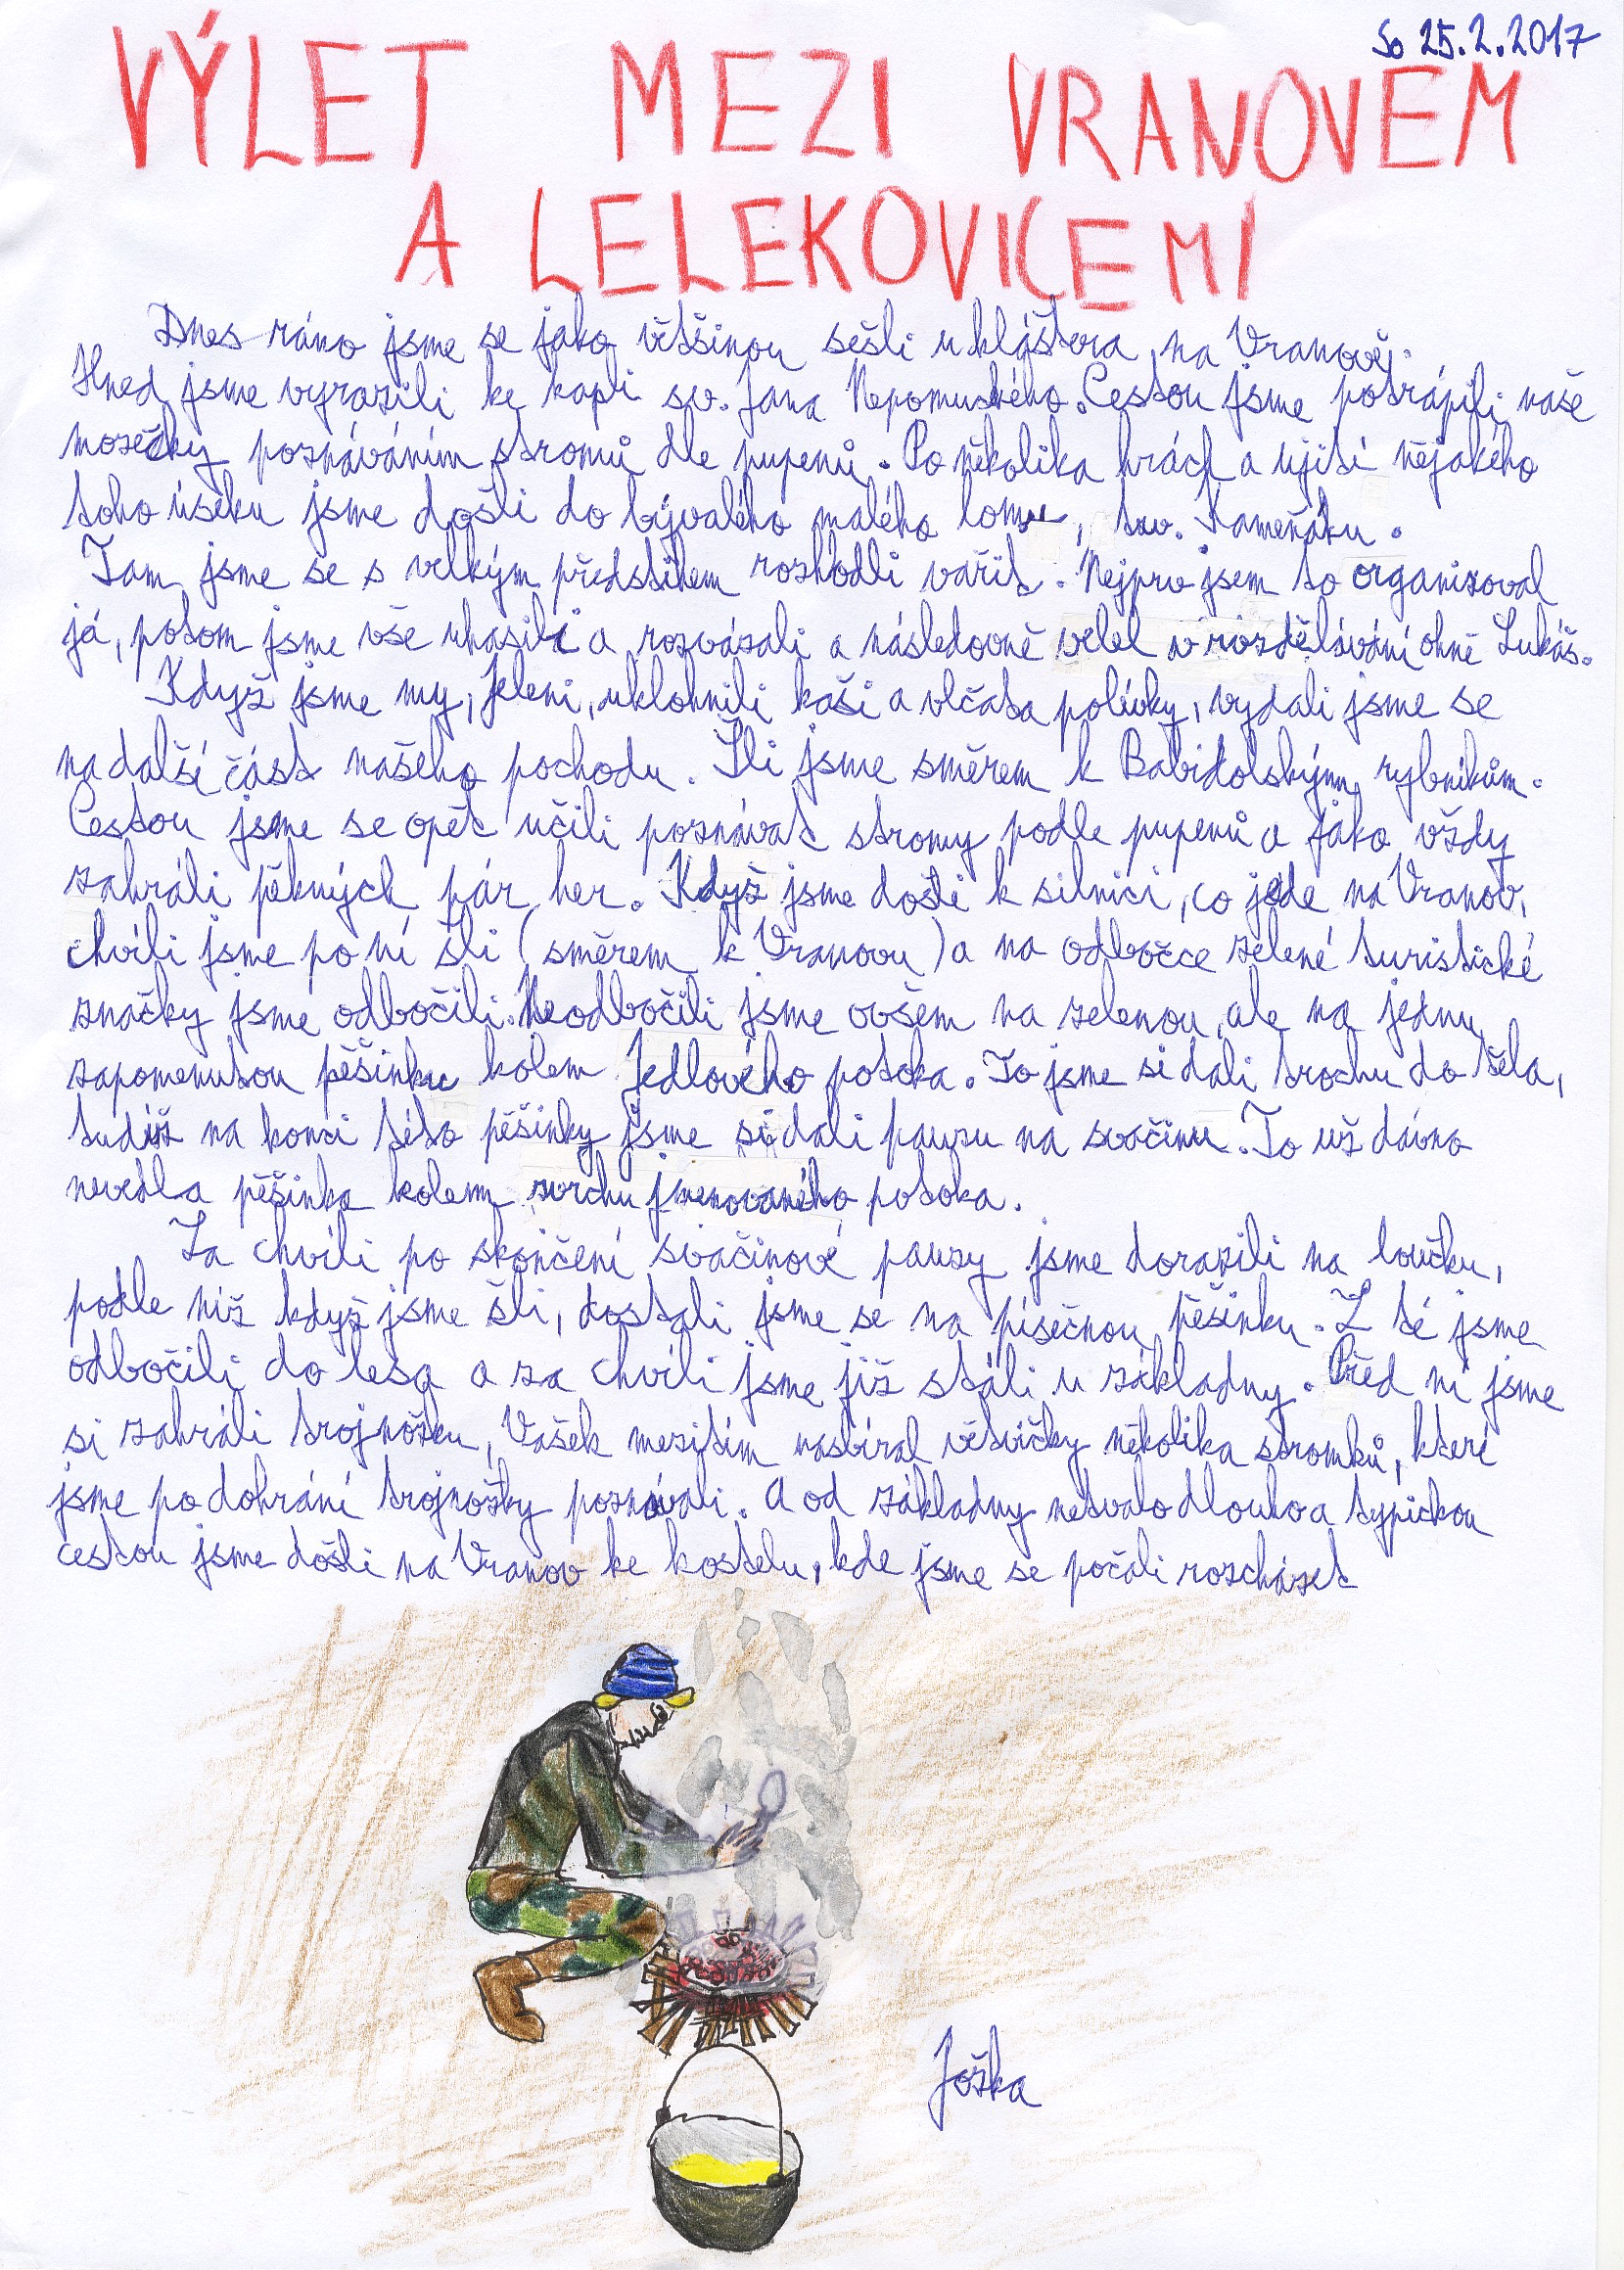 So 25.2.2017
VÝLET MEZI VRANOVEM
A LELEKOVICEMI
Dnes ráno jsme se jako většinou sešli u kláštera na Vranově.
Hned jsme vyrazili ke kapli sv. Jana Nepomuckého. Cestou jsme potrápili naše
mozečky poznáváním stromů dle pupenů. Po několika hrách a ujití nějakého
toho úseku jsme došli do bývalého malého lomu, tzv. Kameňáku.
Tam jsme se s velkým předstihem rozhodli vařit. Nejprv jsem to organizoval
já, potom jsme vše uhasili a rozvázali a následovně velel v rozdělávání ohně Lukáš.
Když jsme my, Jeleni, uklohnili kaši a vlčata polívky, vydali jsme se
na další část našeho pochodu. Šli jsme směrem k Babidolským rybníkům.
Cestou jsme se opět učili poznávat stromy podle pupenů a jako vždy
zahráli pěkných pár her. Když jsme došli k silnici, co jede na Vranov,
chvíli jsme po ní šli (směrem k Vranovu) a na odbočce zelené turistické
značky jsme odbočili. Neodbočili jsme ovšem na zelenou, ale na jednu
zapomenutou pěšinku kolem Jedlového potoka. To jsme si dali trochu do těla,
tudíž na konci této pěšinky jsme si dali pauzu na svačinu. To už dávno
nevedla pěšinka kolem svrchu jmenovaného potoka.
Za chvíli po skončení svačinové pauzy jsme dorazili na loučku,
podle níž když jsme šli, dostali jsme se na písečnou pěšinku. Z té jsme
odbočili do lesa a za chvíli jsme již stáli u základny. Před ní jsme
si zahráli trojnožku, Vašek mezitím nasbíral větvičky několika stromků, které
jsme po dohrání trojnožky poznávali. A od základny netrvalo dlouho a typickou
cestou jsme došli na Vranov ke kostelu, kde jsme se počali rozcházet
Jožka